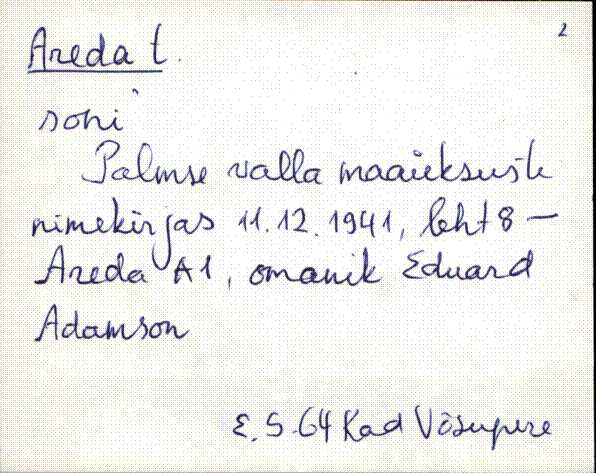 2
Areda t.
Palmse valla maaüksuste
nimekirjas 11.12.1941, leht 8 –
Areda A1, omanik Eduard
Adamson
E. S-64 Kad Võsupere